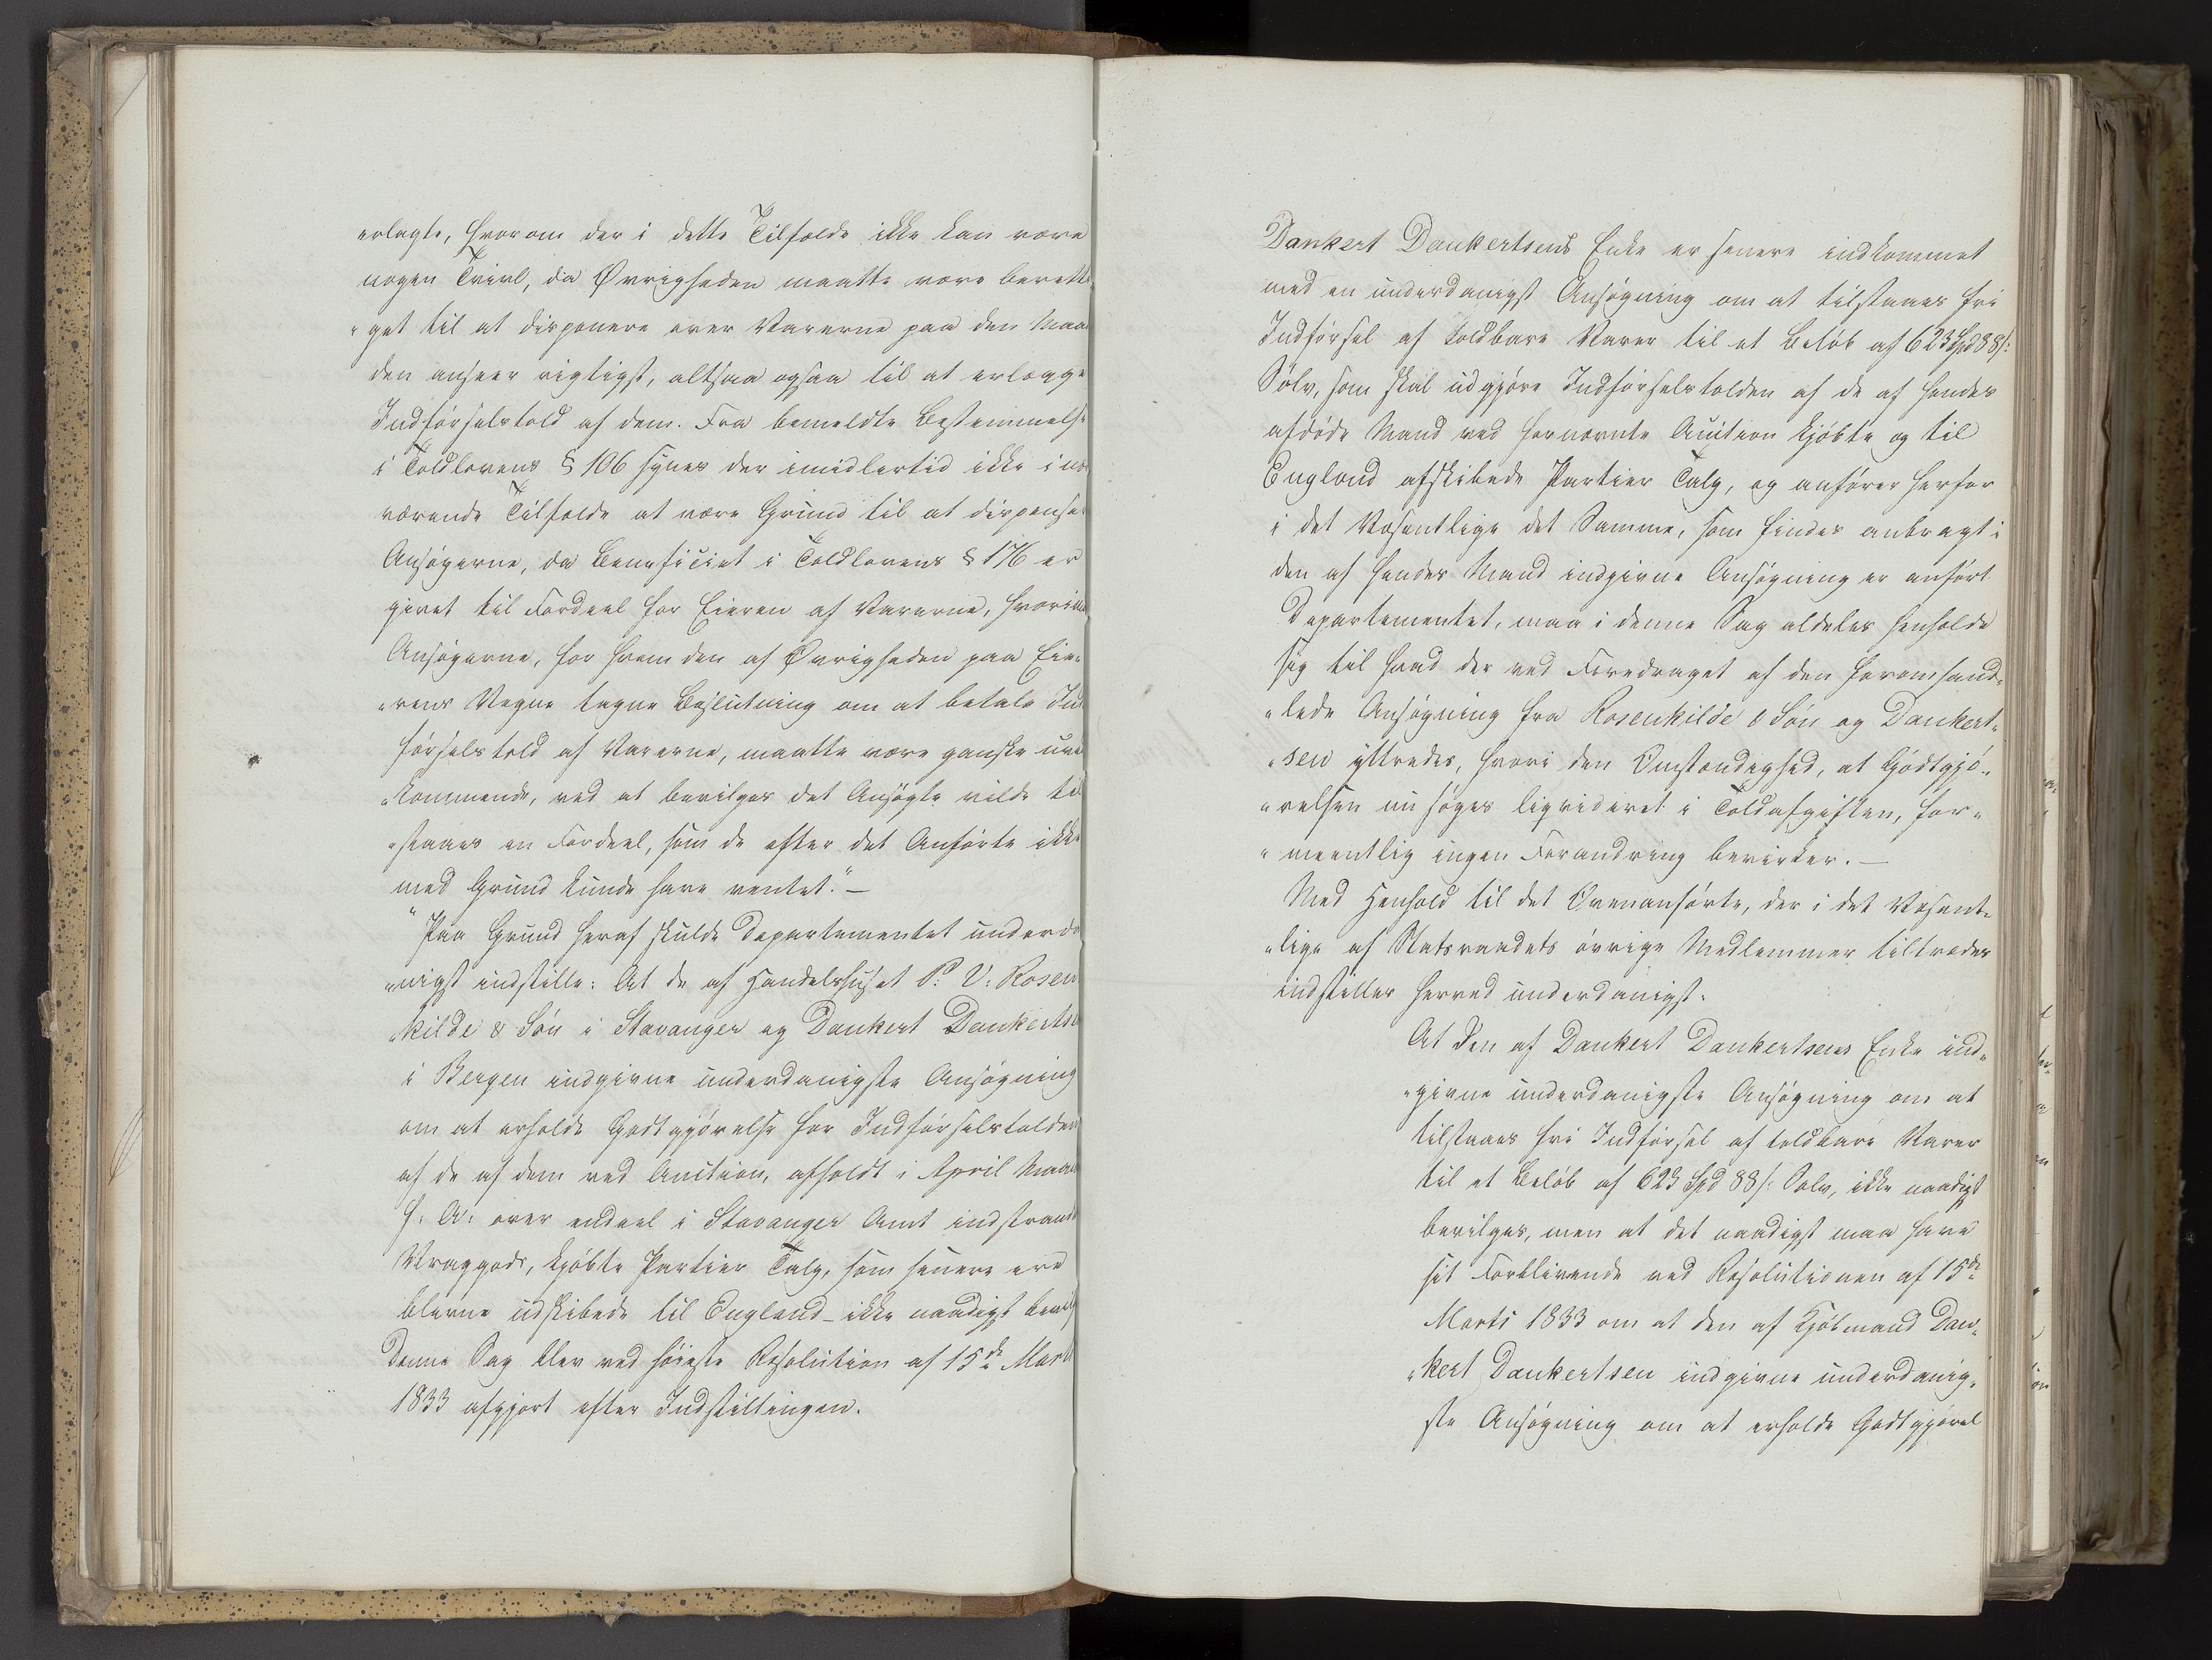 erlagte, hvorom der i dette Tilfælde ikke kan være
nogen Tvivl, da Øvrigheden maatte være beretti
"get til at disponere over Varerne paa den Maa
den anseer rigtigst, altsaa ogsaa til at erlægge
Indførselstold af dem. Fra bemeldte Bestemmelse
i Toldlovens § 106 synes der imidlertid ikke i nær
værende Tilfælde at være Grund til at dispensere
Ansøgerne, da Beneficiet i Toldlovens § 176 er
givet til Fordeel for Eieren af Varerne, hvorimod
Ansøgerne, for hvem den af Øvrigheden paa Eie
"rens Vegne tagne Beslutning om at betale Ind
førselstold af Varerne, maatte være ganske uved
"kommende, ved at bevilges det Ansøgte vilde til
"staaes en Fordeel, som de efter det Anførte ikke
med Grund kunde have ventet." —
"Paa Grund heraf skulde Departementet underda
"nigst indstille: At de af Handelshuset P. V: Rosen
"kilde & Søn i Stavanger og Dankert Dankertse
i Bergen indgivne underdanigste Ansøgning
om at erholde Godtgjørelse for Indførselstolden
af de af dem ved Auction, afholdt i April Maan
f: A: over endeel i Stavanger Amt indstrand
Vraggods, kjøbte Partier Talg, som senere ere
blevne udskibede til England - ikke naadigst bevilg
Denne Sag blev ved høieste Resolution af 15de Marts
1833 afgjort efter Indstillingen.
Dankert Dankertsens Enke er senere indkommet
med en underdanigst Ansøgning om at tilstaaes fri
Indførsel af toldbare Varer til et Beløb af 623 Spd 88 s:
Sølv, som skal udgjøre Indførselstolden af de af hendes
afdøde Mand ved fornævnte Auction kjøbte og til
England afskibede Partier Talg, og anfører herfor
i det Væsentlige det Samme, som findes anbragt i
den af hendes Mand indgivne Ansøgning er anført
Departementet, maa i denne Sag aldeles henholde
sig til hvad der ved Foredraget af den heromhand"
"lede Ansøgning fra Rosenkilde & Søn og Dankert"
"sen yttredes, hvori den Omstændighed, at Godtgjø"
"relsen nu søges liqvideret i Toldafgiften, for"
"meentlig ingen Forandring bevirker. —
Med Henhold til det Ovenanførte, der i det Væsent"
"lige af Statsraadets øvrige Medlemmer tiltrædes
indstilles herved underdanigst:
At den af Dankert Dankertsens Enke ind"
"givne underdanigste Ansøgning om at
tilstaaes fri Indførsel af toldbare Varer
til et Beløb af 623 Spd 88 s: Sølv, ikke naadigst
bevilges, men at det naadigst maa have
sit Forblivende ved Resolutionen af 15de
Marts 1833 om at den af Kjøbmand Dan"
"kert Dankertsen indgivne underdanig"
ste Ansøgning om at erholde Godtgjørel